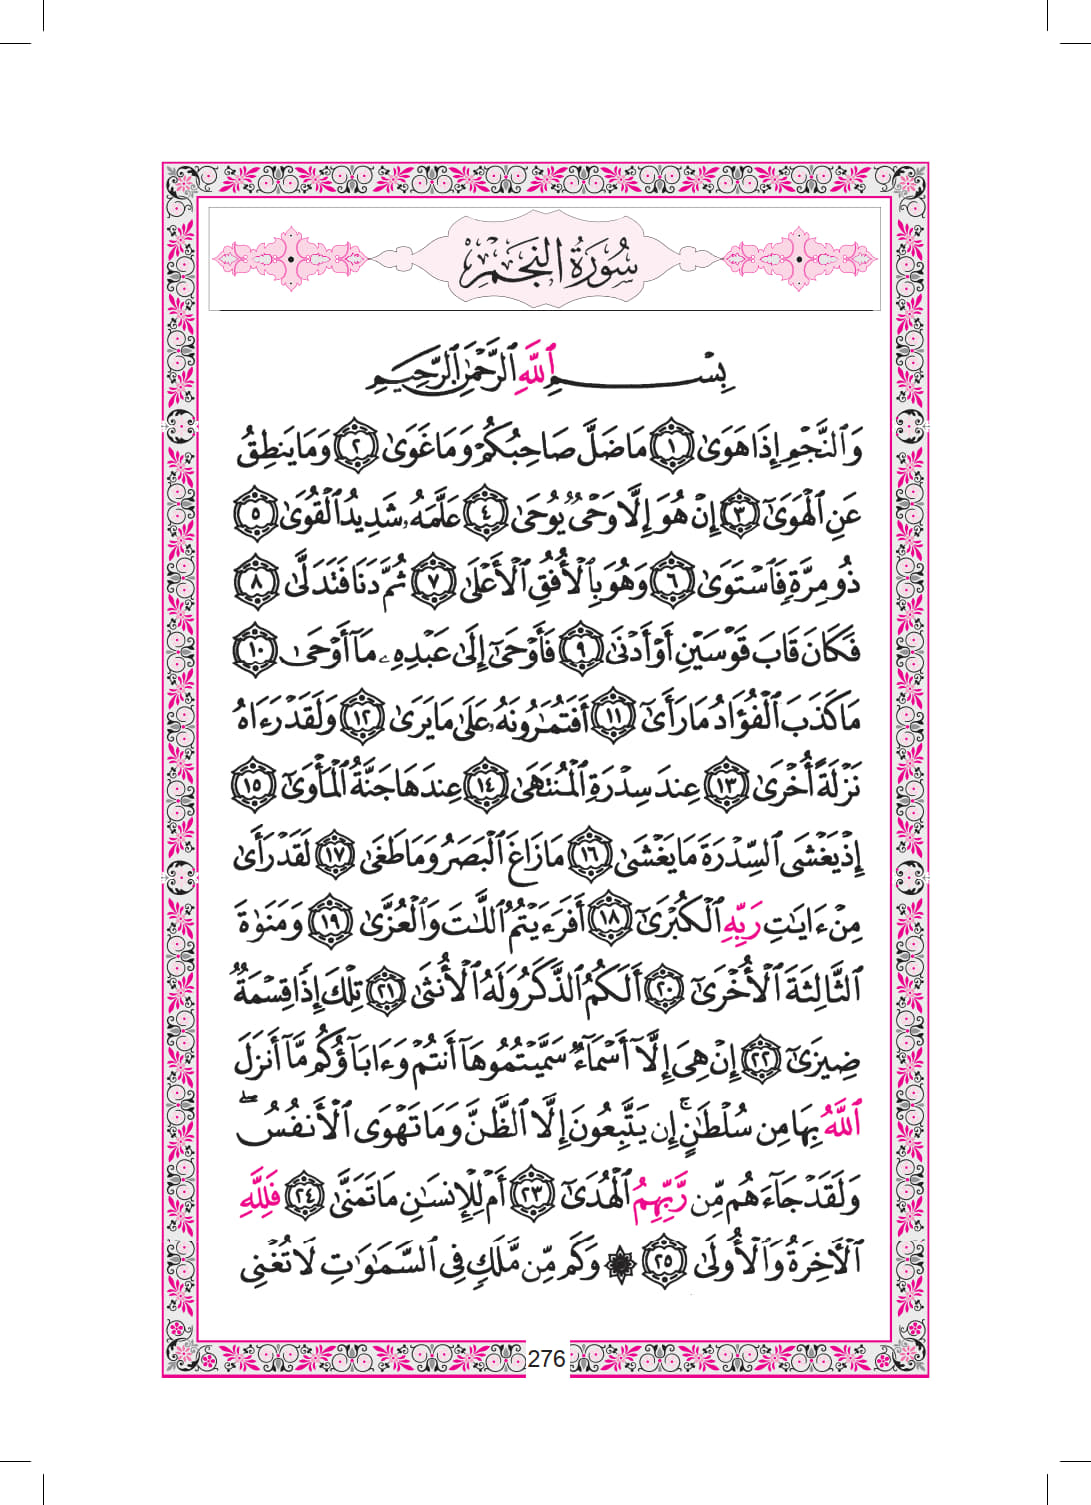 سُورَةُ النَّجْمِ
بِسْمِ ٱللَّهِ ٱلرَّحْمَٰنِ ٱلرَّحِيمِ
وَٱلنَّجْمِ إِذَا هَوَىٰ ١ مَا ضَلَّ صَاحِبُكُمْ وَمَا غَوَىٰ ٢ وَمَا يَنطِقُ
عَنِ ٱلْهَوَىٰٓ ٣ إِنْ هُوَ إِلَّا وَحْىٌ يُوحَىٰ ٤ عَلَّمَهُۥ شَدِيدُ ٱلْقُوَىٰ ٥
ذُو مِرَّةٍ فَٱسْتَوَىٰ ٦ وَهُوَ بِٱلْأُفُقِ ٱلْأَعْلَىٰ ٧ ثُمَّ دَنَا فَتَدَلَّىٰ ٨
فَكَانَ قَابَ قَوْسَيْنِ أَوْ أَدْنَىٰ ٩ فَأَوْحَىٰٓ إِلَىٰ عَبْدِهِۦ مَآ أَوْحَىٰ ١٠
مَا كَذَبَ ٱلْفُؤَادُ مَا رَأَىٰٓ ١١ أَفَتُمَٰرُونَهُۥ عَلَىٰ مَا يَرَىٰ ١٢ وَلَقَدْ رَءَاهُ
نَزْلَةً أُخْرَىٰ ١٣ عِندَ سِدْرَةِ ٱلْمُنتَهَىٰ ١٤ عِندَهَا جَنَّةُ ٱلْمَأْوَىٰٓ ١٥
إِذْ يَغْشَى ٱلسِّدْرَةَ مَا يَغْشَىٰ ١٦ مَا زَاغَ ٱلْبَصَرُ وَمَا طَغَىٰ ١٧ لَقَدْ رَأَىٰ
مِنْ ءَايَٰتِ رَبِّهِ ٱلْكُبْرَىٰٓ ١٨ أَفَرَءَيْتُمُ ٱللَّٰتَ وَٱلْعُزَّىٰ ١٩ وَمَنَوٰةَ
ٱلثَّالِثَةَ ٱلْأُخْرَىٰٓ ٢٠ أَلَكُمُ ٱلذَّكَرُ وَلَهُ ٱلْأُنثَىٰ ٢١ تِلْكَ إِذًا قِسْمَةٌ
ضِيزَىٰٓ ٢٢ إِنْ هِىَ إِلَّآ أَسْمَآءٌ سَمَّيْتُمُوهَآ أَنتُمْ وَءَابَآؤُكُم مَّآ أَنزَلَ
ٱللَّهُ بِهَا مِن سُلْطَٰنٍ ۚ إِن يَتَّبِعُونَ إِلَّا ٱلظَّنَّ وَمَا تَهْوَى ٱلْأَنفُسُ ۖ
وَلَقَدْ جَآءَهُم مِّن رَّبِّهِمُ ٱلْهُدَىٰٓ ٢٣ أَمْ لِلْإِنسَٰنِ مَا تَمَنَّىٰ ٢٤ فَلِلَّهِ
ٱلْءَاخِرَةُ وَٱلْأُولَىٰ ٢٥ ۞ وَكَم مِّن مَّلَكٍ فِى ٱلسَّمَٰوَٰتِ لَا تُغْنِى
276